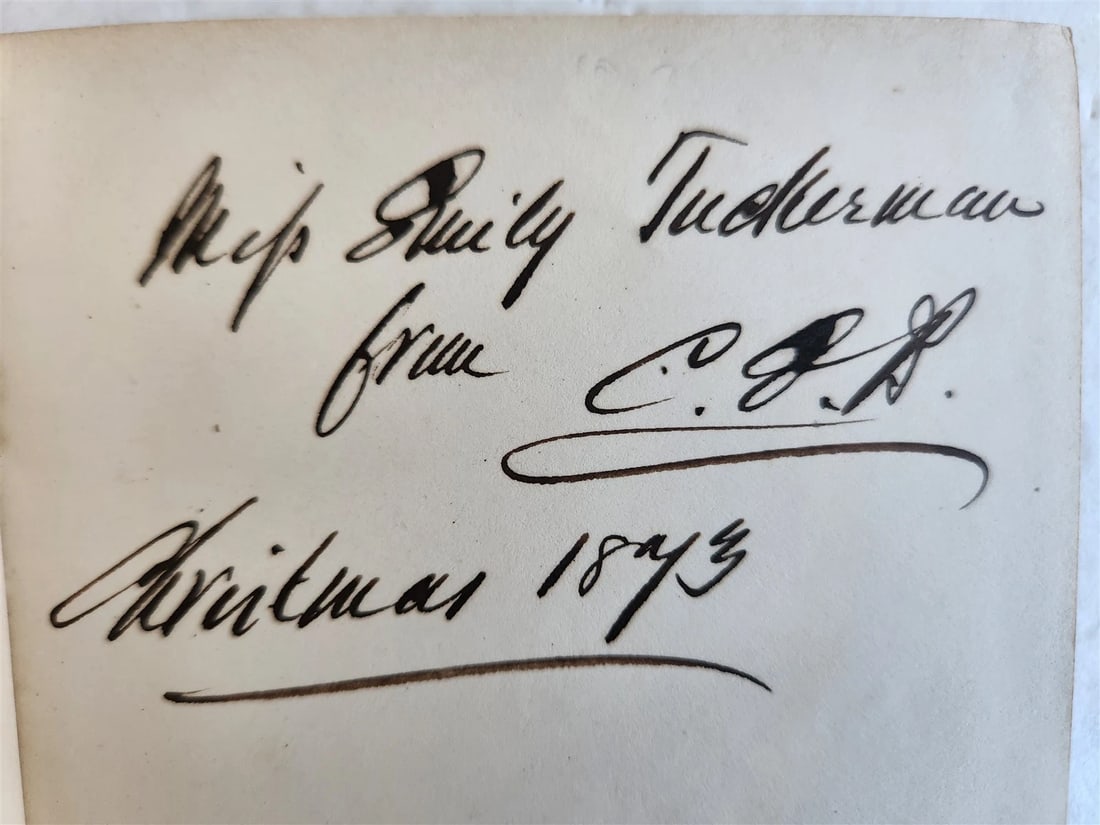 Miss Emily Tuckerman
from C. E. D.
Christmas 1873